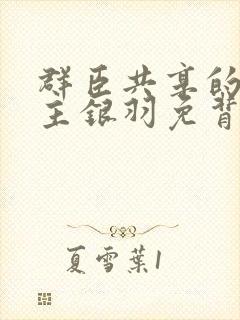 群臣共享的
主银羽免背
夏雪葉1